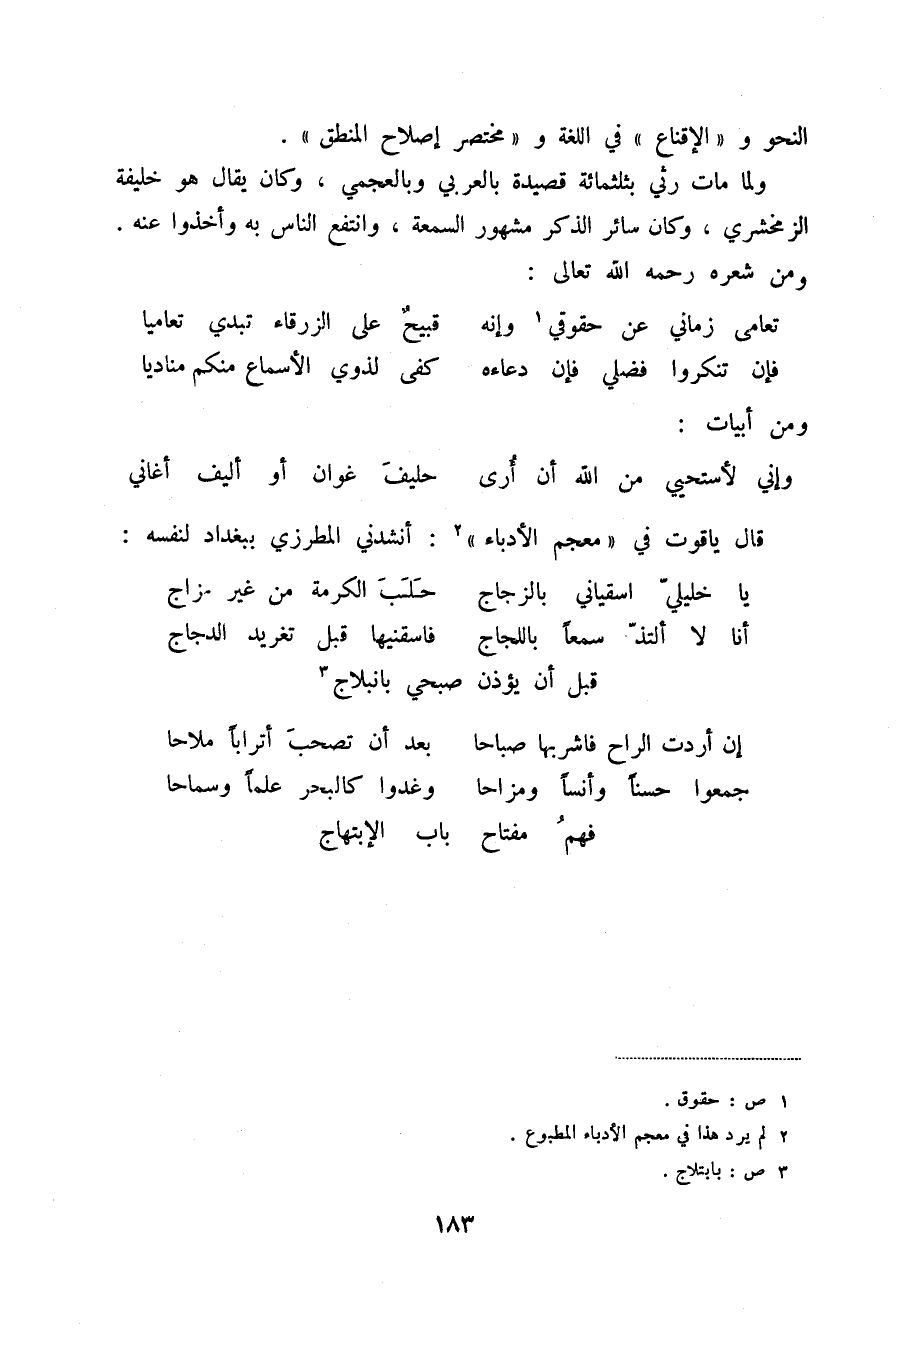 النحو و « الإقناع » في اللغة و « مختصر إصلاح المنطق » .
ولما مات رثي بثلثمائة قصيدة بالعربي وبالعجمي ، وكان يقال هو خليفة
الزمخشري ، وكان سائر الذكر مشهور السمعة ، وانتفع الناس به وأخذوا عنه .
ومن شعره رحمه الله تعالى :
تعامى زماني عن حقوقي١ وإنه قبيحٌ على الزرقاء تبدي تعاميا
فإن تنكروا فضلي فإن دعاءه كفى لذوي الأسماع منكم مناديا
ومن أبيات :
وإني لأستحيي من الله أن أُرى حليفَ غوان أو أليف أغاني
قال ياقوت في « معجم الأدباء »٢ : أنشدني المطرزي ببغداد لنفسه :
يا خليليّ اسقياني بالزجاج حَلَبَ الكرمة من غير مزاج
أنا لا ألتذّ سمعاً باللجاج فاسقنيها قبل تغريد الدجاج
قبل أن يؤذن صبحي بانبلاج٣
إن أردت الراح فاشربها صباحا بعد أن تصحبَ أتراباً ملاحا
جمعوا حسناً وأنساً ومزاحا وغدوا كالبحر علماً وسماحا
فهمُ مفتاح باب الإبتهاج
١ ص : حقوق .
٢ لم يرد هذا في معجم الأدباء المطبوع .
٣ ص : بابتلاج .
١٨٣